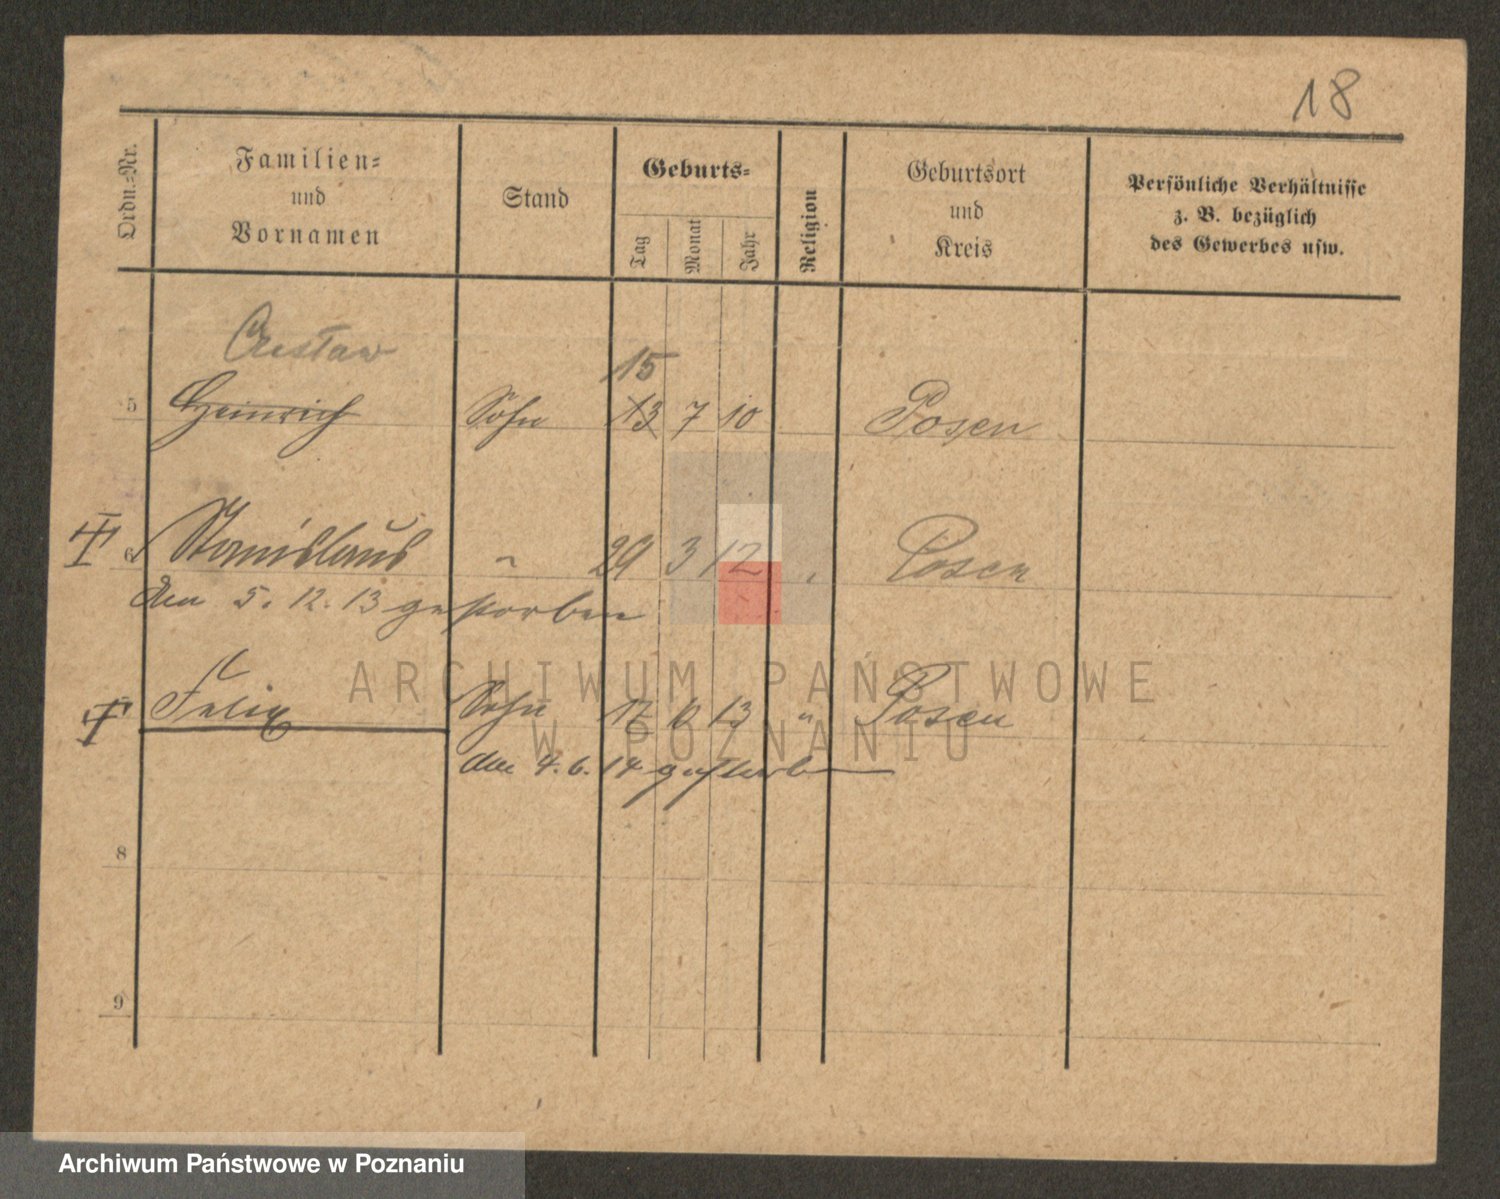 18
Ordn.-Nr.
Familien-
und
Vornamen
Stand
Geburts-
Tag
Monat
Jahr
Religion
Geburtsort
und
Kreis
Persönliche Verhältnisse
z. B. bezüglich
des Gewerbes usw.
Gustaw 15
5 Heinrich Sohn 13 7 10 Posen
6 Stanislaus " 29 3 12 " Posen
den 5. 12. 13 gestorben
Felix Sohn 17 13 " Posen
den 4. 6. 14 gestorben
8
9
ARCHIWUM PAŃSTWOWE
W POZNANIU
Archiwum Państwowe w Poznaniu